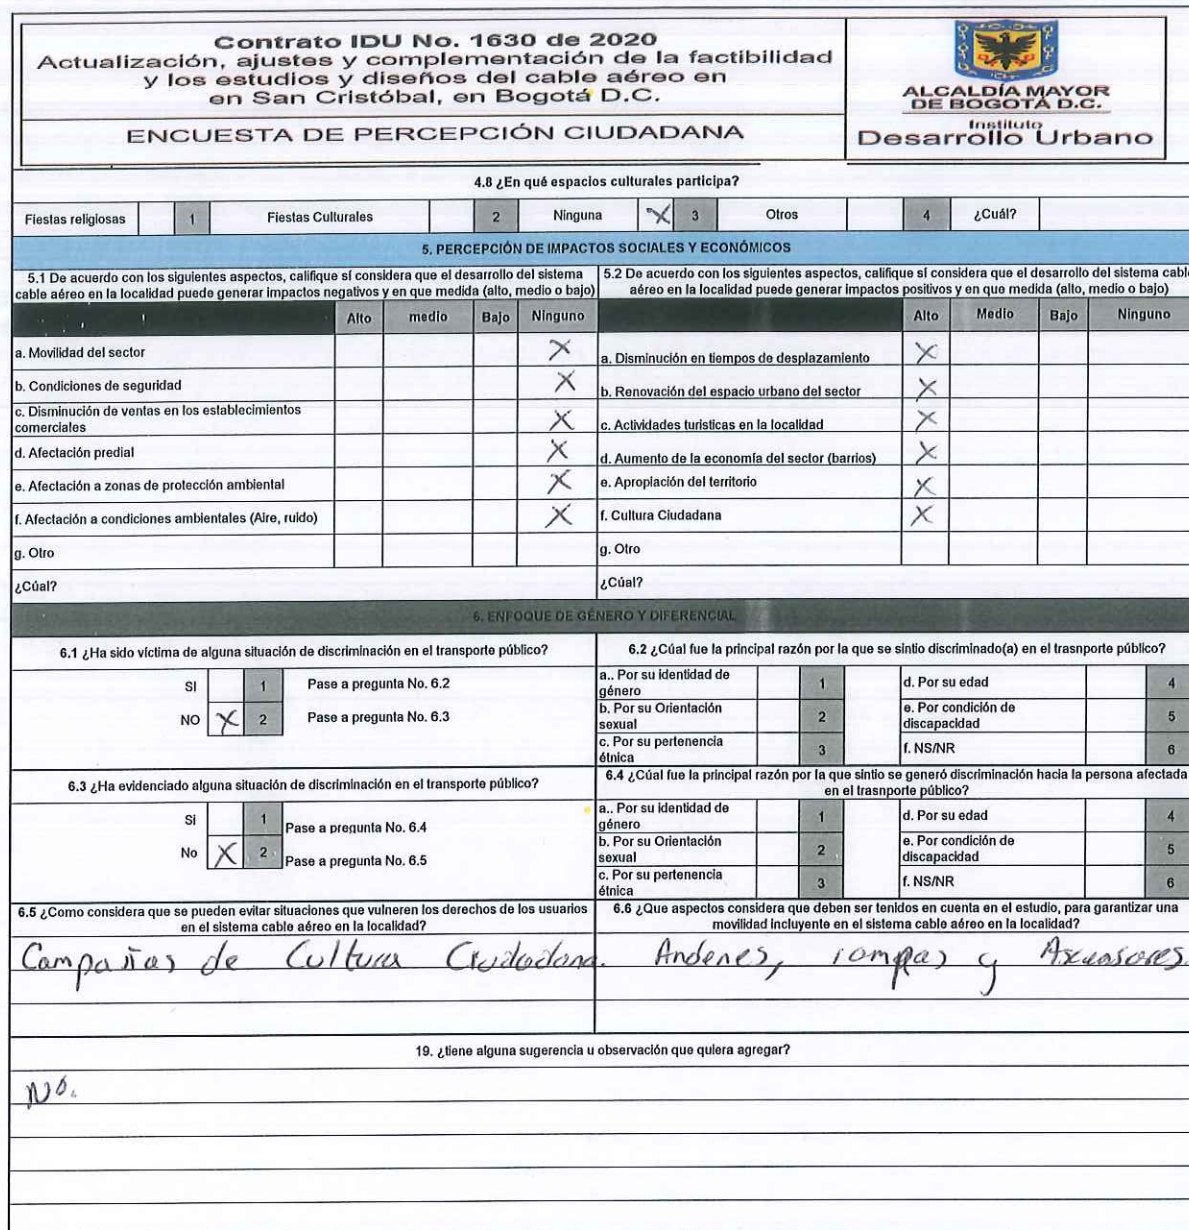 Contrato IDU No. 1630 de 2020
Actualización, ajustes y complementación de la factibilidad
y los estudios y diseños del cable aéreo en
en San Cristóbal, en Bogotá D.C.
ENCUESTA DE PERCEPCIÓN CIUDADANA
ALCALDÍA MAYOR
DE BOGOTÁ D.C.
Instituto
Desarrollo Urbano
4.8 ¿En qué espacios culturales participa?
Fiestas religiosas 1 Fiestas Culturales 2 Ninguna X 3 Otros 4 ¿Cuál?
5. PERCEPCIÓN DE IMPACTOS SOCIALES Y ECONÓMICOS
5.1 De acuerdo con los siguientes aspectos, califique sí considera que el desarrollo del sistema
cable aéreo en la localidad puede generar impactos negativos y en que medida (alto, medio o bajo)
Alto medio Bajo Ninguno
a. Movilidad del sector X
b. Condiciones de seguridad X
c. Disminución de ventas en los establecimientos
comerciales X
d. Afectación predial X
e. Afectación a zonas de protección ambiental X
f. Afectación a condiciones ambientales (Aire, ruido) X
g. Otro
¿Cúal?
5.2 De acuerdo con los siguientes aspectos, califique sí considera que el desarrollo del sistema cable
aéreo en la localidad puede generar impactos positivos y en que medida (alto, medio o bajo)
Alto Medio Bajo Ninguno
a. Disminución en tiempos de desplazamiento X
b. Renovación del espacio urbano del sector X
c. Actividades turisticas en la localidad X
d. Aumento de la economía del sector (barrios) X
e. Apropiación del territorio X
f. Cultura Ciudadana X
g. Otro
¿Cúal?
6. ENFOQUE DE GÉNERO Y DIFERENCIAL
6.1 ¿Ha sido víctima de alguna situación de discriminación en el transporte público?
SI 1 Pase a pregunta No. 6.2
NO X 2 Pase a pregunta No. 6.3
6.2 ¿Cúal fue la principal razón por la que se sintio discriminado(a) en el trasnporte público?
a.. Por su identidad de
género 1 d. Por su edad 4
b. Por su Orientación
sexual 2 e. Por condición de
discapacidad 5
c. Por su pertenencia
étnica 3 f. NS/NR 6
6.3 ¿Ha evidenciado alguna situación de discriminación en el transporte público?
Si 1 Pase a pregunta No. 6.4
No X 2 Pase a pregunta No. 6.5
6.4 ¿Cúal fue la principal razón por la que sintio se generó discriminación hacia la persona afectada
en el trasnporte público?
a.. Por su identidad de
género 1 d. Por su edad 4
b. Por su Orientación
sexual 2 e. Por condición de
discapacidad 5
c. Por su pertenencia
étnica 3 f. NS/NR 6
6.5 ¿Como considera que se pueden evitar situaciones que vulneren los derechos de los usuarios
en el sistema cable aéreo en la localidad?
Campañas de Cultura Ciudadana.
6.6 ¿Que aspectos considera que deben ser tenidos en cuenta en el estudio, para garantizar una
movilidad incluyente en el sistema cable aéreo en la localidad?
Andenes, rampas y Ascensores.
19. ¿tiene alguna sugerencia u observación que quiera agregar?
No.